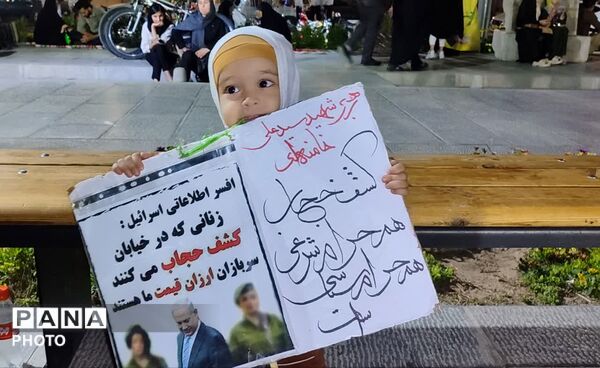 رهبر شهید سید علی
خامنه‌ای
کشف حجاب
هم حرام شرعی
هم حرام سیاسی
است
افسر اطلاعاتی اسرائیل :
زنانی که در خیابان
کشف حجاب می کنند
سربازان ارزان قیمت ما هستند
PANA
PHOTO